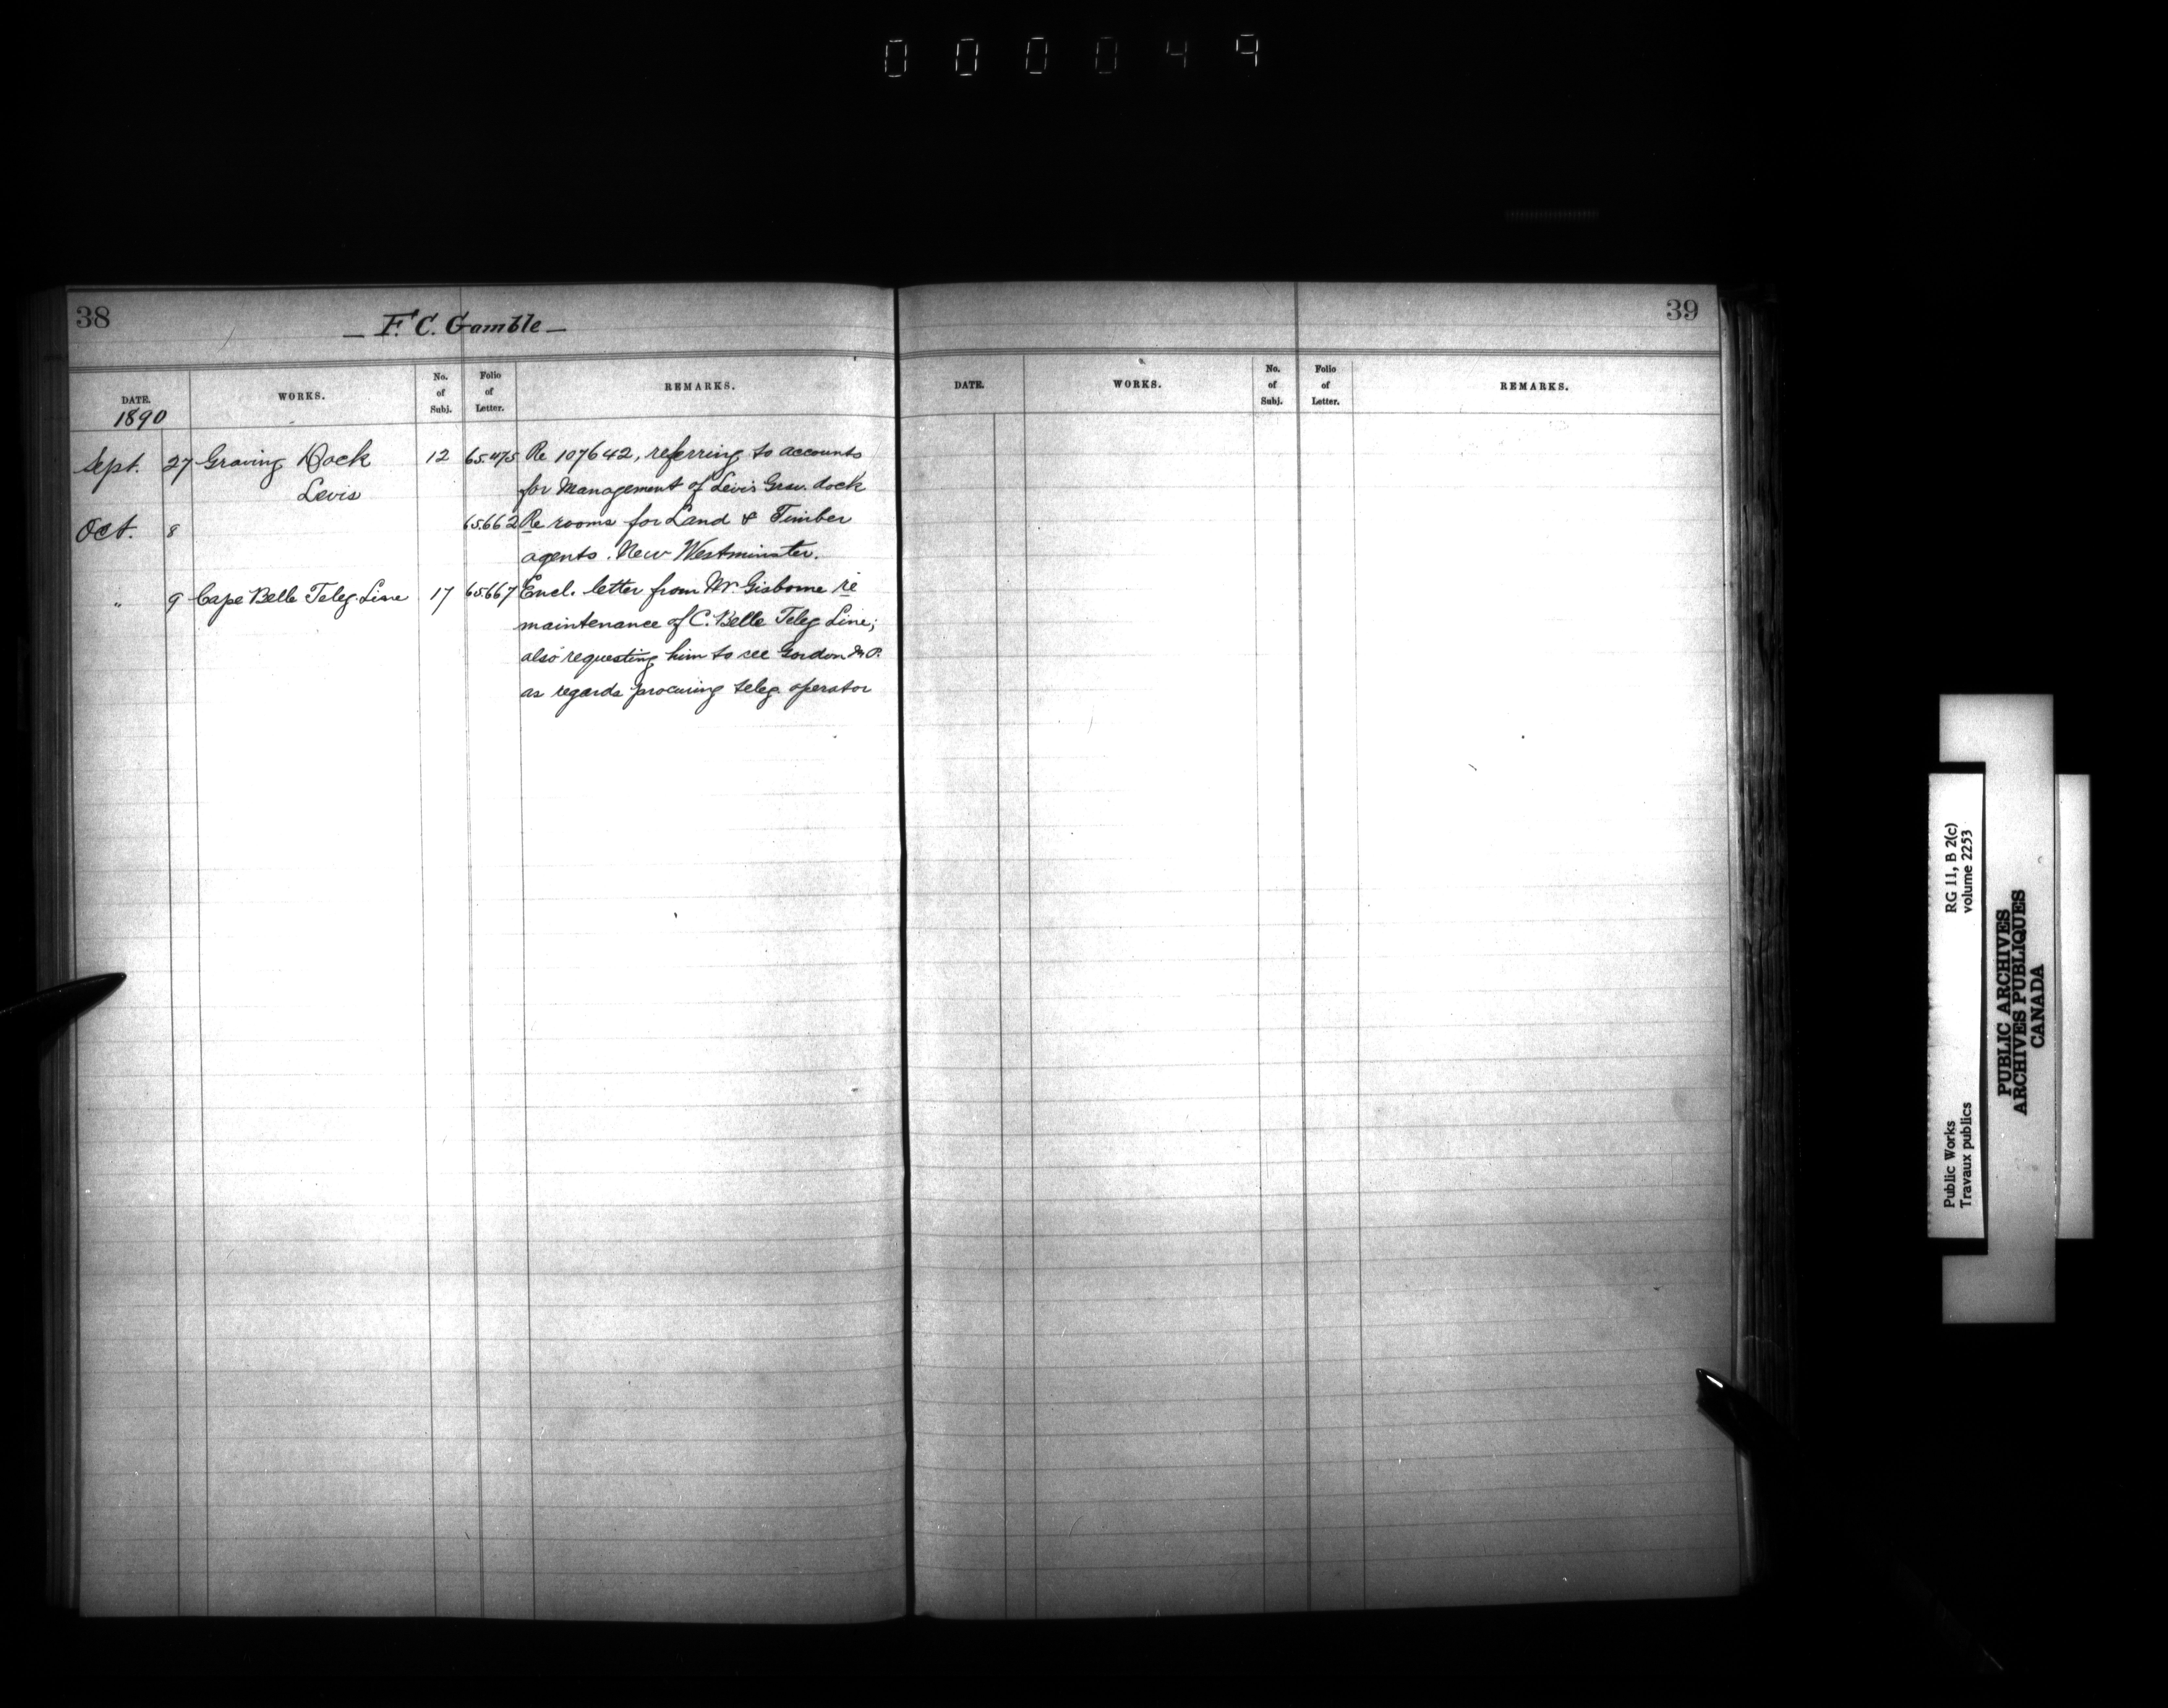 000049
38
— F. C. Gamble —
DATE.
1890
WORKS.
No. of Subj.
Folio of Letter.
REMARKS.
Sept. 27 Graving Dock 12 Re 107642, referring to accounts
Levis for Management of Levis Grav. dock
Oct. 8 65.662 Re rooms for Land & Timber
agents. New Westminster.
" 9 Cape Belle Teleg. Line 17 65.667 Encl. letter from Mr. Gisborne re
maintenance of C. Belle Teleg. Line;
also requesting him to see Gordon M.P.
as regards procuring teleg. operator
39
DATE.
WORKS.
No. of Subj.
Folio of Letter.
REMARKS.
Public Works
Travaux publics
RG 11, B 2(c)
volume 2253
PUBLIC ARCHIVES
ARCHIVES PUBLIQUES
CANADA